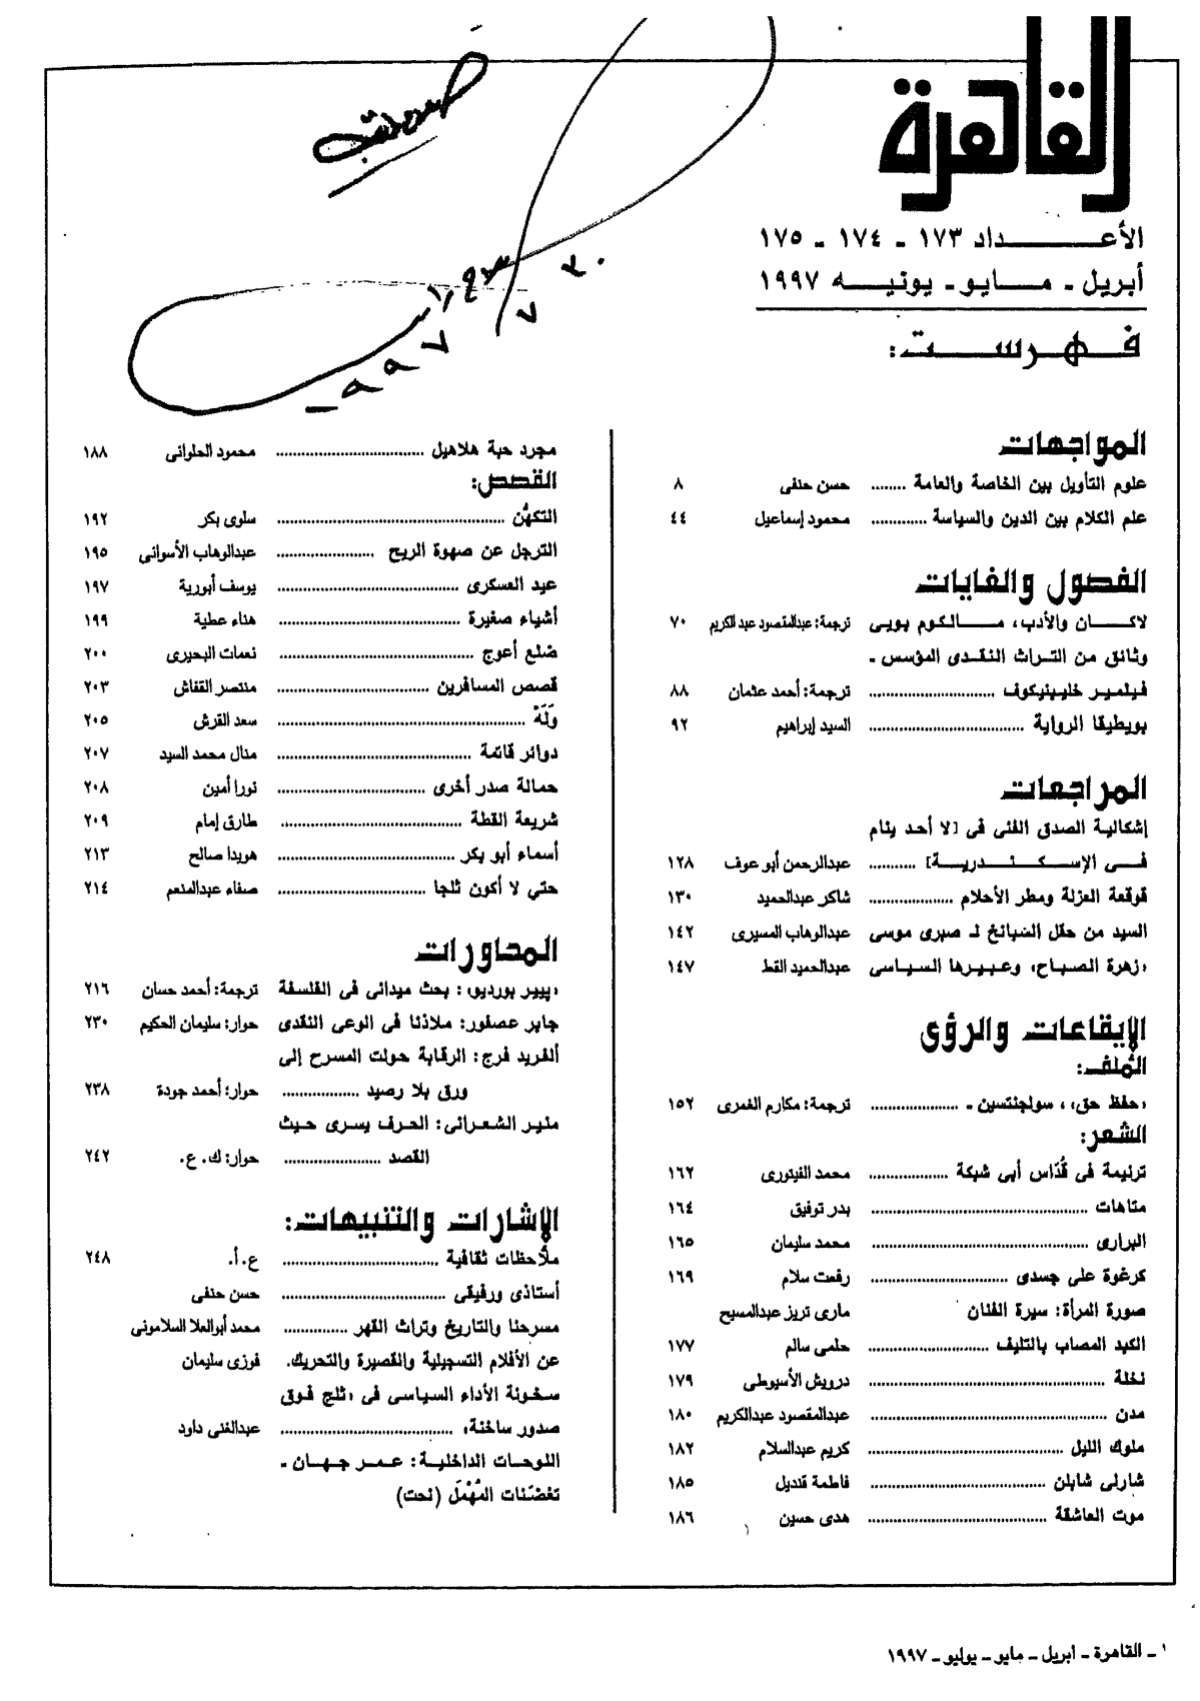 القاهرة
الأعداد ١٧٣ ـ ١٧٤ ـ ١٧٥
أبريل ـ مايو ـ يونيه ١٩٩٧
فهرست:
المواجهات
علوم التأويل بين الخاصة والعامة ........ حسن حنفى ٨
علم الكلام بين الدين والسياسة ............. محمود إسماعيل ٤٤
الفصول والغايات
لاكان والأدب، مالكوم بويى ترجمة: عبدالمقصود عبدالكريم ٧٠
وثائق من التراث النقدى المؤسس ـ
فيلمير خليبنيكوف ............................ ترجمة: أحمد عثمان ٨٨
بويطيقا الرواية .................................. السيد إبراهيم ٩٢
المراجعات
إشكالية الصدق الفنى فى [لا أحد ينام
فى الإسكندرية] .......... عبدالرحمن أبو عوف ١٢٨
قوقعة العزلة ومطر الأحلام ................... شاكر عبدالحميد ١٣٠
السيد من حقل السبانخ لـ صبرى موسى عبدالوهاب المسيرى ١٤٢
«زهرة الصباح» وعبيرها السياسى عبدالحميد القط ١٤٧
الإيقاعات والرؤى
الملف:
«حفظ حق»، سولجنتسين ـ .................... ترجمة: مكارم الغمرى ١٥٢
الشعر:
ترنيمة فى قُدّاس أبى شبكة .................. محمد الفيتورى ١٦٢
متاهات ................................................ بدر توفيق ١٦٤
البرارى ................................................ محمد سليمان ١٦٥
كرغوة على جسدى ............................... رفعت سلام ١٦٩
صورة المرأة: سيرة الفنان مارى تريز عبدالمسيح
الكبد المصاب بالتليف ........................... حلمى سالم ١٧٧
نخلة ..................................................... درويش الأسيوطى ١٧٩
مدن ..................................................... عبدالمقصود عبدالكريم ١٨٠
ملوك الليل ............................................ كريم عبدالسلام ١٨٢
شارلى شابلن ....................................... فاطمة قنديل ١٨٥
موت العاشقة ........................................ هدى حسين ١٨٦
مجرد حبة هلاهيل ................................. محمود الحلوانى ١٨٨
القصص:
التكهُّن ................................................... سلوى بكر ١٩٢
الترجل عن صهوة الريح ...................... عبدالوهاب الأسوانى ١٩٥
عيد العسكرى ........................................ يوسف أبورية ١٩٧
أشياء صغيرة ......................................... هناء عطية ١٩٩
ضلع أعوج ............................................ نعمات البحيرى ٢٠٠
قصص المسافرين .................................. منتصر القفاش ٢٠٣
وَلَهْ ........................................................ سعد القرش ٢٠٥
دوائر قاتمة ........................................... منال محمد السيد ٢٠٧
حمالة صدر أخرى ................................. نورا أمين ٢٠٨
شريعة القطة ......................................... طارق إمام ٢٠٩
أسماء أبو بكر ........................................ هويدا صالح ٢١٣
حتي لا أكون ثلجا ................................. صفاء عبدالمنعم ٢١٤
المحاورات
«پيير بورديو» : بحث ميدانى فى الفلسفة ترجمة: أحمد حسان ٢١٦
جابر عصفور: ملاذنا فى الوعى النقدى حوار: سليمان الحكيم ٢٣٠
ألفريد فرج: الرقابة حولت المسرح إلى
ورق بلا رصيد ................. حوار: أحمد جودة ٢٣٨
منير الشعرانى: الحرف يسرى حيث
القصد ...................... حوار: ك. ع. ٢٤٢
الإشارات والتنبيهات:
ملاحظات ثقافية ................................... ع. أ. ٢٤٨
أستاذى ورفيقى ..................................... حسن حنفى
مسرحنا والتاريخ وتراث القهر .............. محمد أبوالعلا السلامونى
عن الأفلام التسجيلية والقصيرة والتحريك. فوزى سليمان
سخونة الأداء السياسى فى «ثلج فوق
صدور ساخنة» ...................................... عبدالغنى داود
اللوحات الداخلية: عمر جهان ـ
تغضّنات المُهْمَل (نحت)
١ ـ القاهرة ـ ابريل ـ مايو ـ يوليو ـ ١٩٩٧